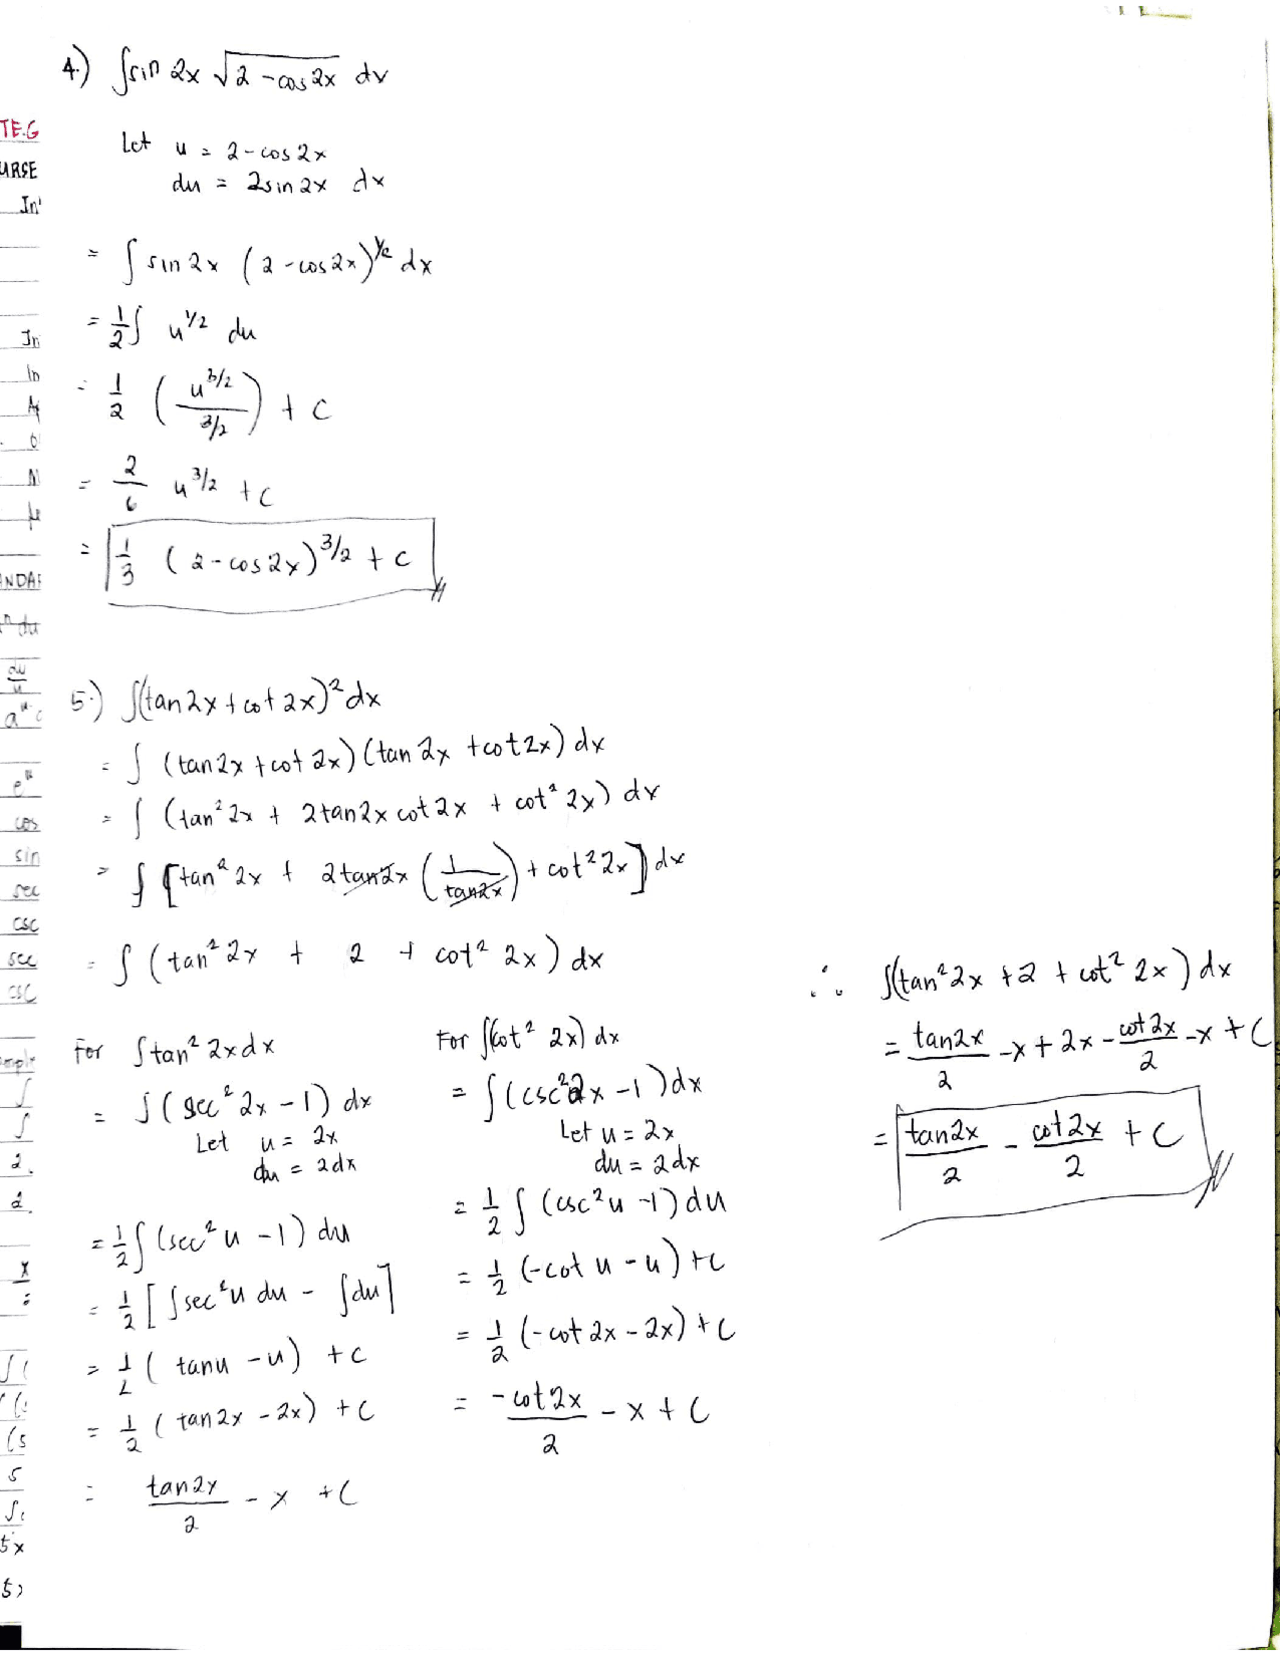 4.) ∫sin 2x √(2 - cos 2x) dx
Let u = 2 - cos 2x
du = 2 sin 2x dx
= ∫ sin 2x (2 - cos 2x)^1/2 dx
= 1/2 ∫ u^1/2 du
= 1/2 (u^3/2 / 3/2) + C
= 2/6 u^3/2 + C
= 1/3 (2 - cos 2x)^3/2 + C
5.) ∫(tan 2x + cot 2x)² dx
= ∫ (tan 2x + cot 2x)(tan 2x + cot 2x) dx
= ∫ (tan² 2x + 2 tan 2x cot 2x + cot² 2x) dx
= ∫ [tan² 2x + 2 tan 2x (1/tan 2x) + cot² 2x] dx
= ∫ (tan² 2x + 2 + cot² 2x) dx
For ∫tan² 2x dx
= ∫(sec² 2x - 1) dx
Let u = 2x
du = 2dx
= 1/2 ∫(sec² u - 1) du
= 1/2 [∫sec² u du - ∫du]
= 1/2 (tan u - u) + C
= 1/2 (tan 2x - 2x) + C
= tan 2x / 2 - x + C
For ∫(cot² 2x) dx
= ∫(csc² 2x - 1) dx
Let u = 2x
du = 2dx
= 1/2 ∫ (csc² u - 1) du
= 1/2 (-cot u - u) + C
= 1/2 (-cot 2x - 2x) + C
= -cot 2x / 2 - x + C
∴ ∫(tan² 2x + 2 + cot² 2x) dx
= tan 2x / 2 - x + 2x - cot 2x / 2 - x + C
= tan 2x / 2 - cot 2x / 2 + C
TE.G
URSE
In
In
A
O
N
NDA
du
du/u
a^u
e^u
cos
sin
sec
csc
sec
csc
∫
∫
2.
2.
x
∫(
(s
5
5x